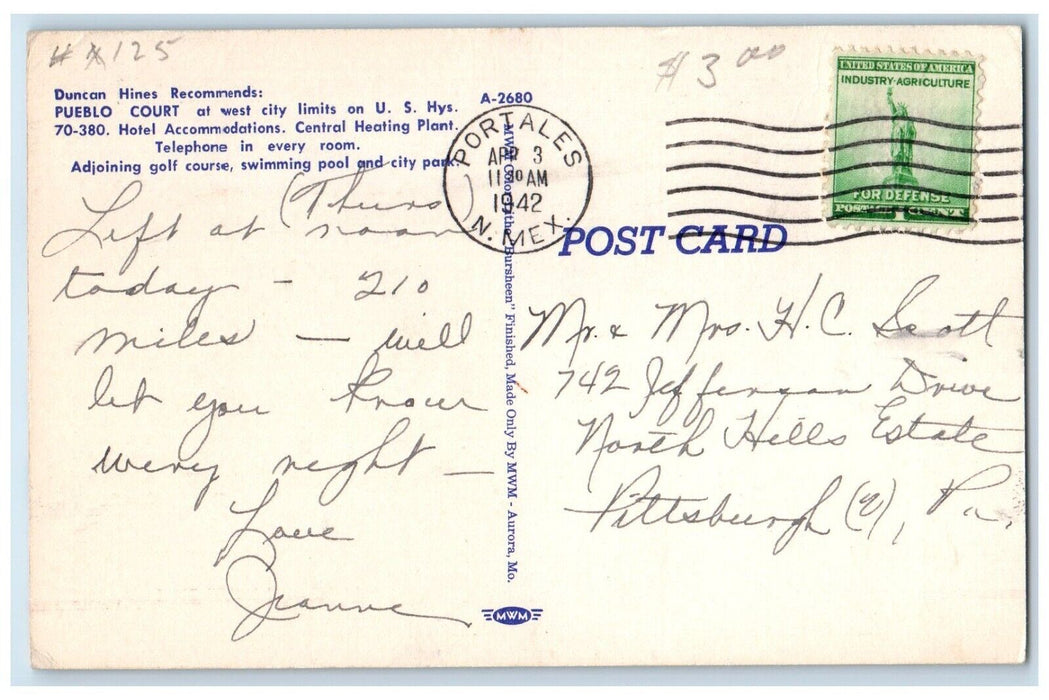 # 125
$3.00
Duncan Hines Recommends:
PUEBLO COURT at west city limits on U. S. Hys.
70-380. Hotel Accommodations. Central Heating Plant.
Telephone in every room.
Adjoining golf course, swimming pool and city park.
A-2680
PORTALES
APR 3
11 30 AM
1942
N. MEX.
UNITED STATES OF AMERICA
INDUSTRY-AGRICULTURE
FOR DEFENSE
POSTAGE
POST CARD
MWM Color-Litho "Bursheen" Finished, Made Only By MWM - Aurora, Mo.
MWM
(Thurs)
Left at noon
today - 210
miles - will
let you know
every night -
Love
Jeanne
Mr. & Mrs. H. C. Scott
742 Jefferson Drive
North Hills Estate
Pittsburgh (9), Pa.